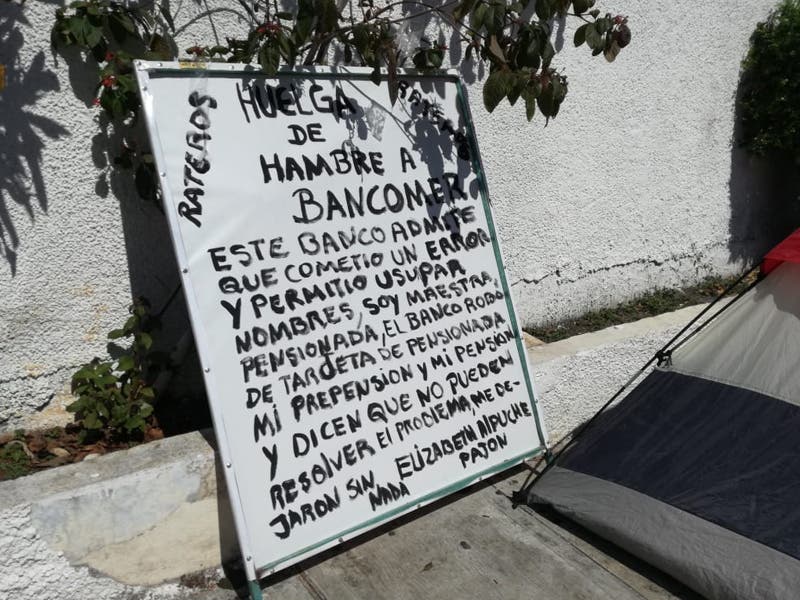 RATEROS
HUELGA
DE
HAMBRE A
BANCOMER
ESTE BANCO ADMITE
QUE COMETIO UN ERROR
Y PERMITIO USUPAR
NOMBRES, SOY MAESTRA,
PENSIONADA, EL BANCO ROBO
DE TARJETA DE PENSIONADA
MI PREPENSION Y MI PENSIÓN
Y DICEN QUE NO PUEDEN
RESOLVER EL PROBLEMA, ME DE-
JARON SIN ELIZABETH NIPUCHE
NADA PAJON